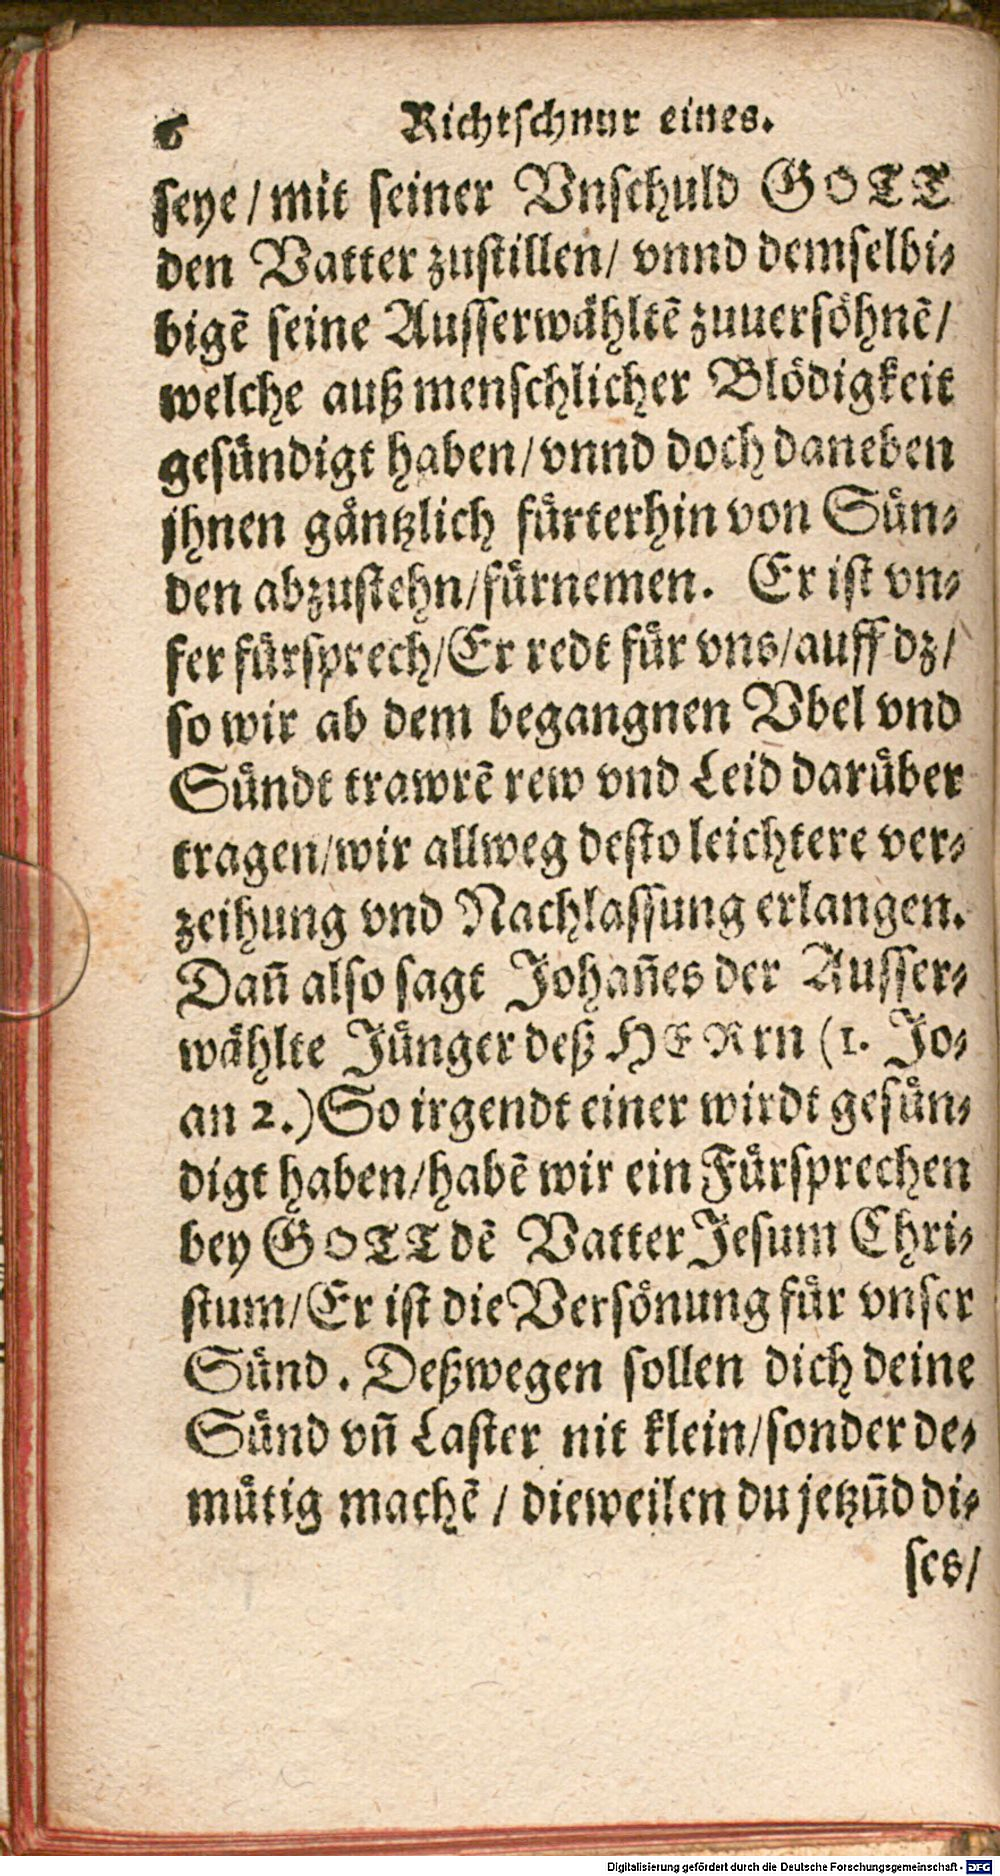 6 Richtschnur eines.
seye / mit seiner Vnschuld GOTT
den Vatter zustillen / vnnd demselbi⸗
bigē seine Ausserwåhltē zuuersöhnē /
welche auß menschlicher Blödigkeit
gesündigt haben / vnnd doch daneben
jhnen gåntzlich fürterhin von Sün⸗
den abzustehn / fürnemen. Er ist vn⸗
ser fürsprech / Er redt für vns / auff dz /
so wir ab dem begangnen Vbel vnd
Sündt trawrē rew vnd Leid darüber
tragen / wir allweg desto leichtere ver⸗
zeihung vnd Nachlassung erlangen.
Dañ also sagt Johañes der Ausser⸗
wåhlte Jünger deß HERrn (1. Jo⸗
an 2.) So irgendt einer wirdt gesün⸗
digt haben / habē wir ein Fürsprechen
bey GOTT dē Vatter Jesum Chri⸗
stum / Er ist die Versönung für vnser
Sünd. Deßwegen sollen dich deine
Sünd vñ Laster nit klein / sonder de⸗
mütig machē / dieweilen du jetzūd di⸗
ses /
Digitalisierung gefördert durch die Deutsche Forschungsgemeinschaft - DFG